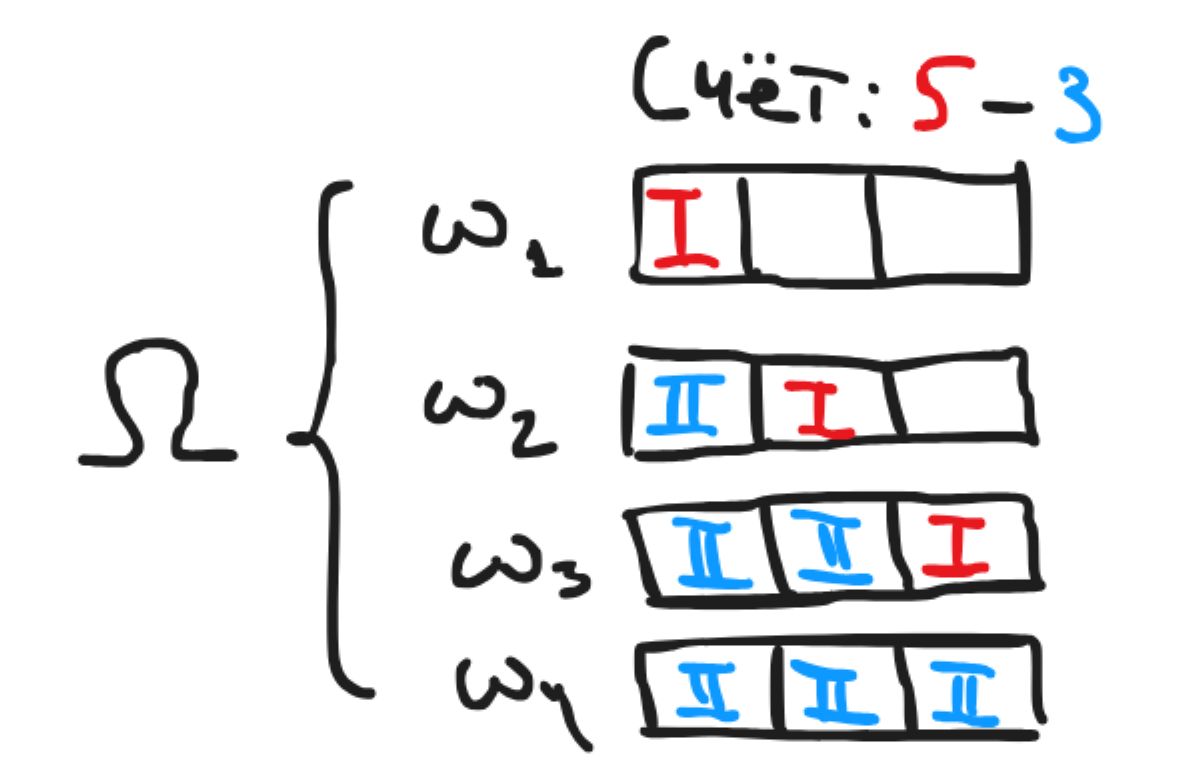 Счёт: 5-3
ω₁ I
Ω
ω₂ II I
ω₃ II II I
ω₄ II II II